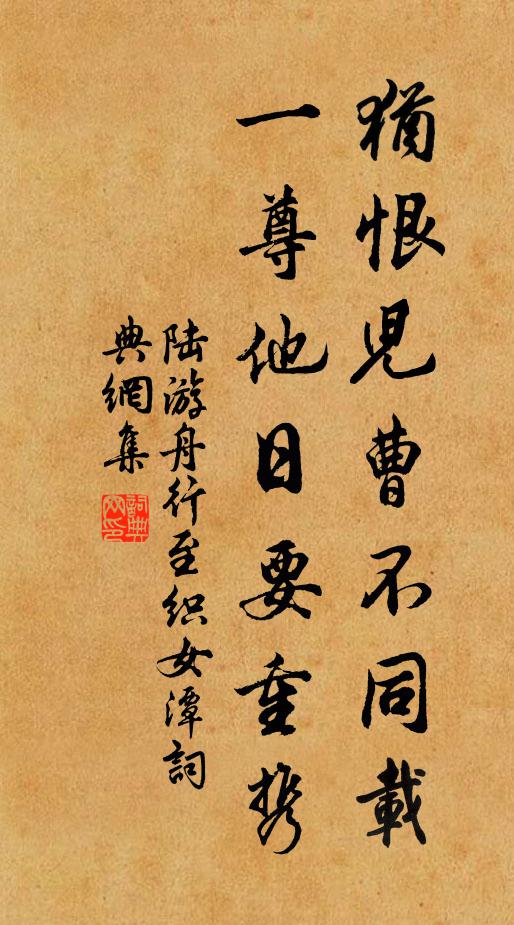 猶恨児曹不同載
一尊他日要重携
陆游舟行至织女潭詞
典網集
詞典
网印